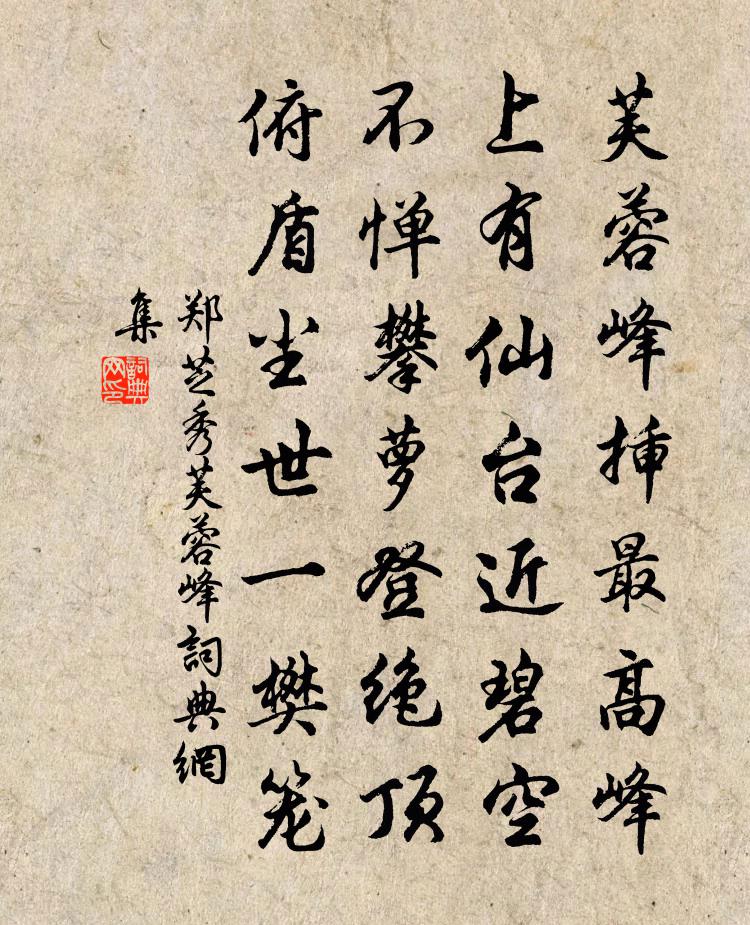 芙蓉峰挿最高峰
上有仙台近碧空
不惮攀萝登绝顶
俯盾尘世一樊笼
郑芝秀芙蓉峰詞典網
集
詞典
网印